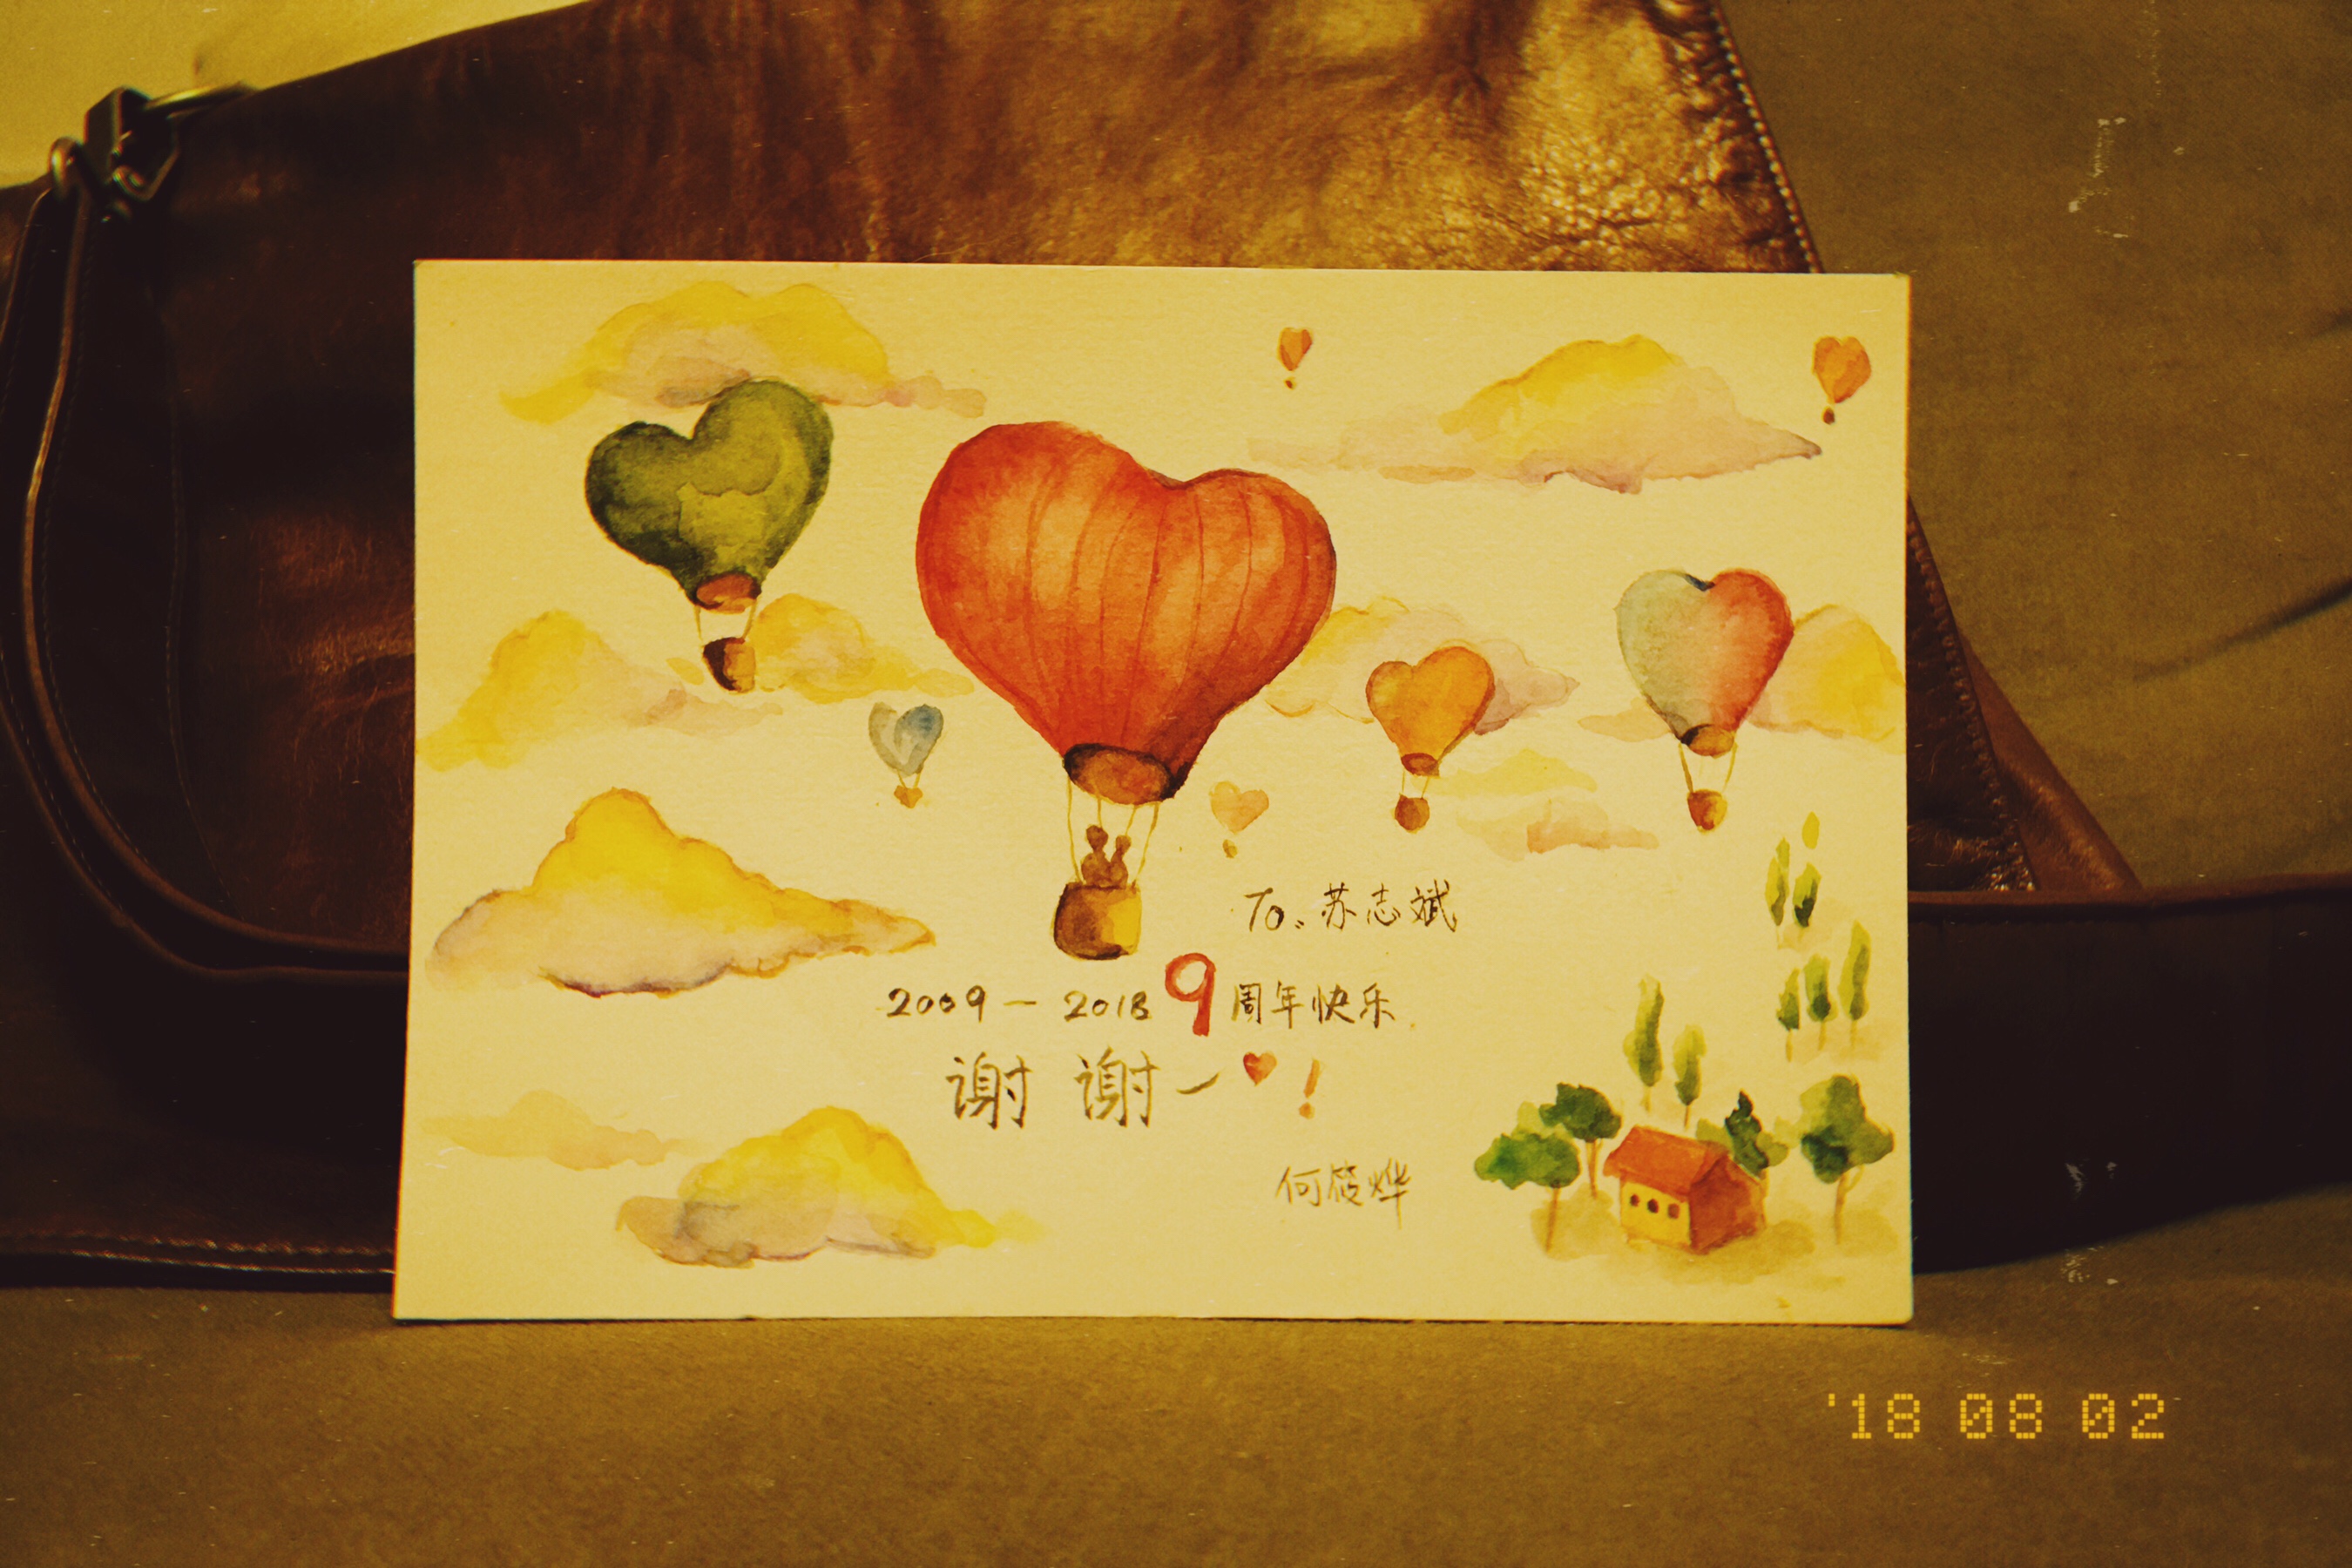 To. 苏志斌
2009 — 2018 9周年快乐
谢谢~♥!
何筱烨
'18 08 02